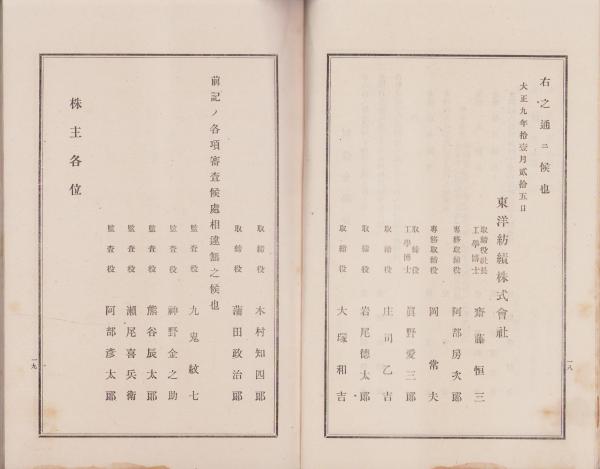 右之通ニ候也
大正九年拾壹月貳拾五日
東洋紡績株式會社
取締役社長
工學博士
齋藤恒三
專務取締役 阿部房次郎
專務取締役 岡常夫
取締役
工學博士
眞野愛三郎
取締役 庄司乙吉
取締役 岩尾德太郎
取締役 大塚和吉
一八
取締役 木村知四郎
取締役 蒲田政治郎
前記ノ各項審査候處相違無之候也
監査役 九鬼紋七
監査役 神野金之助
監査役 熊谷辰太郎
監査役 瀬尾喜兵衛
監査役 阿部彦太郎
株主各位
一九